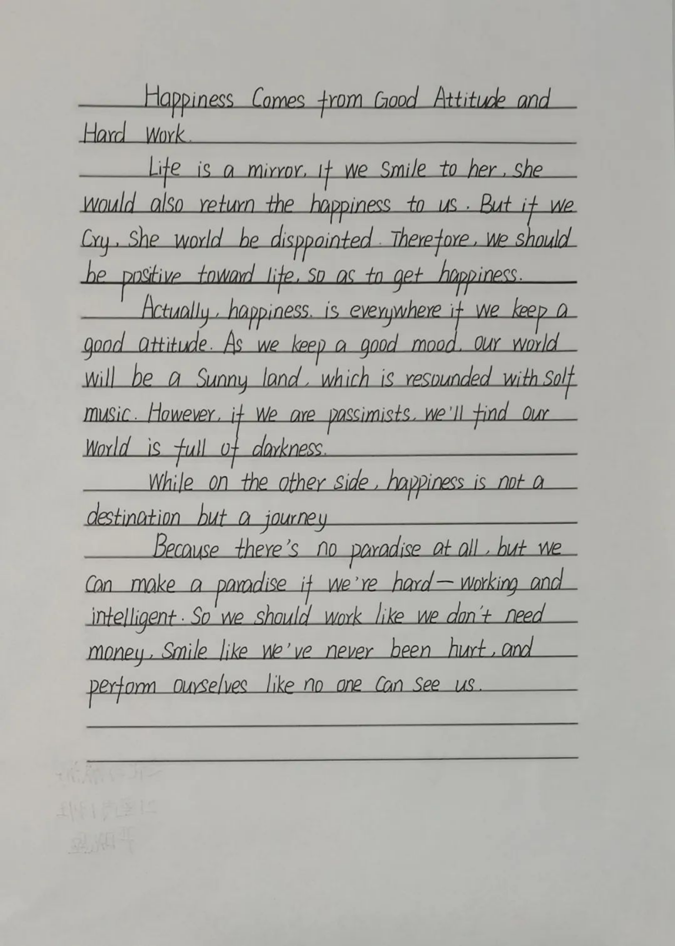 Happiness Comes from Good Attitude and
Hard Work.
Life is a mirror, if we smile to her, she
would also return the happiness to us. But if we
Cry, She world be disppointed. Therefore, we should
be positive toward life, so as to get happiness.
Actually, happiness, is everywhere if we keep a
good attitude. As we keep a good mood, our world
will be a Sunny land, which is resounded with Solf
music. However, if we are passimists, we'll find our
World is full of darkness.
While on the other side, happiness is not a
destination but a journey
Because there's no paradise at all, but we
Can make a paradise if we're hard-working and
intelligent. So we should work like we don't need
money, Smile like we've never been hurt, and
perform ourselves like no one Can See us.